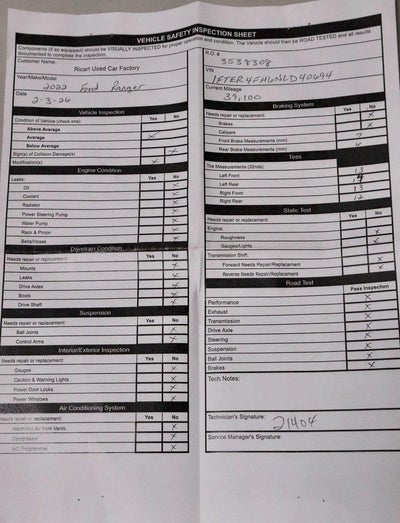 VEHICLE SAFETY INSPECTION SHEET
Components (if so equipped) should be VISUALLY INSPECTED for proper operation and condition. The Vehicle should then be ROAD TESTED and all results
documented to complete the inspection.
Customer Name:
Ricart Used Car Factory
Year/Make/Model
2022 Ford Ranger
Date
2-3-26
Vehicle Inspection
Condition of Vehicle (check one) Yes No
Above Average
Average ✓
Below Average
Sign(s) of Collision Damage(s) X
Modification(s) X
Engine Condition
Leaks: Yes No
Oil X
Coolant X
Radiator X
Power Steering Pump X
Water Pump X
Rack & Pinion X
Belts/Hoses X
Drivetrain Condition
Needs repair or replacement: Yes No
Mounts X
Leaks X
Drive Axles X
Boots X
Drive Shaft X
Suspension
Needs repair or replacement: Yes No
Ball Joints X
Control Arms X
Interior/Exterior Inspection
Needs repair or replacement: Yes No
Gauges X
Caution & Warning Lights X
Power Door Locks X
Power Windows X
Air Conditioning System
Needs repair or replacement: Yes No
Warm/Hot Air from Vents X
Compressor X
A/C Programmer X
R.O. #
3538308
VIN
1FTER4FH6NLD40694
Current Mileage
39,100
Braking System
Needs repair or replacement: Yes No
Brakes X
Calipers X
Front Brake Measurements (mm) 7
Rear Brake Measurements (mm) 6
Tires
Tire Measurements (32nds)
Left Front 13
Left Rear
Right Front 13
Right Rear 12
Static Test
Needs repair or replacement: Yes No
Engine:
Roughness X
Gauges/Lights X
Transmission Shift:
Forward Needs Repair/Replacement X
Reverse Needs Repair/Replacement X
Road Test
Pass Inspection
Performance X
Exhaust X
Transmission X
Drive Axle X
Steering X
Suspension X
Ball Joints X
Brakes X
Tech Notes:
Technician's Signature: 21404
Service Manager's Signature: